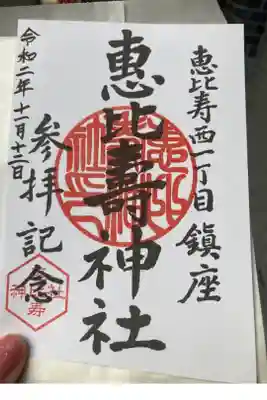 恵比寿西一丁目鎮座
恵比壽神社
参拝記念
令和二年十一月十二日